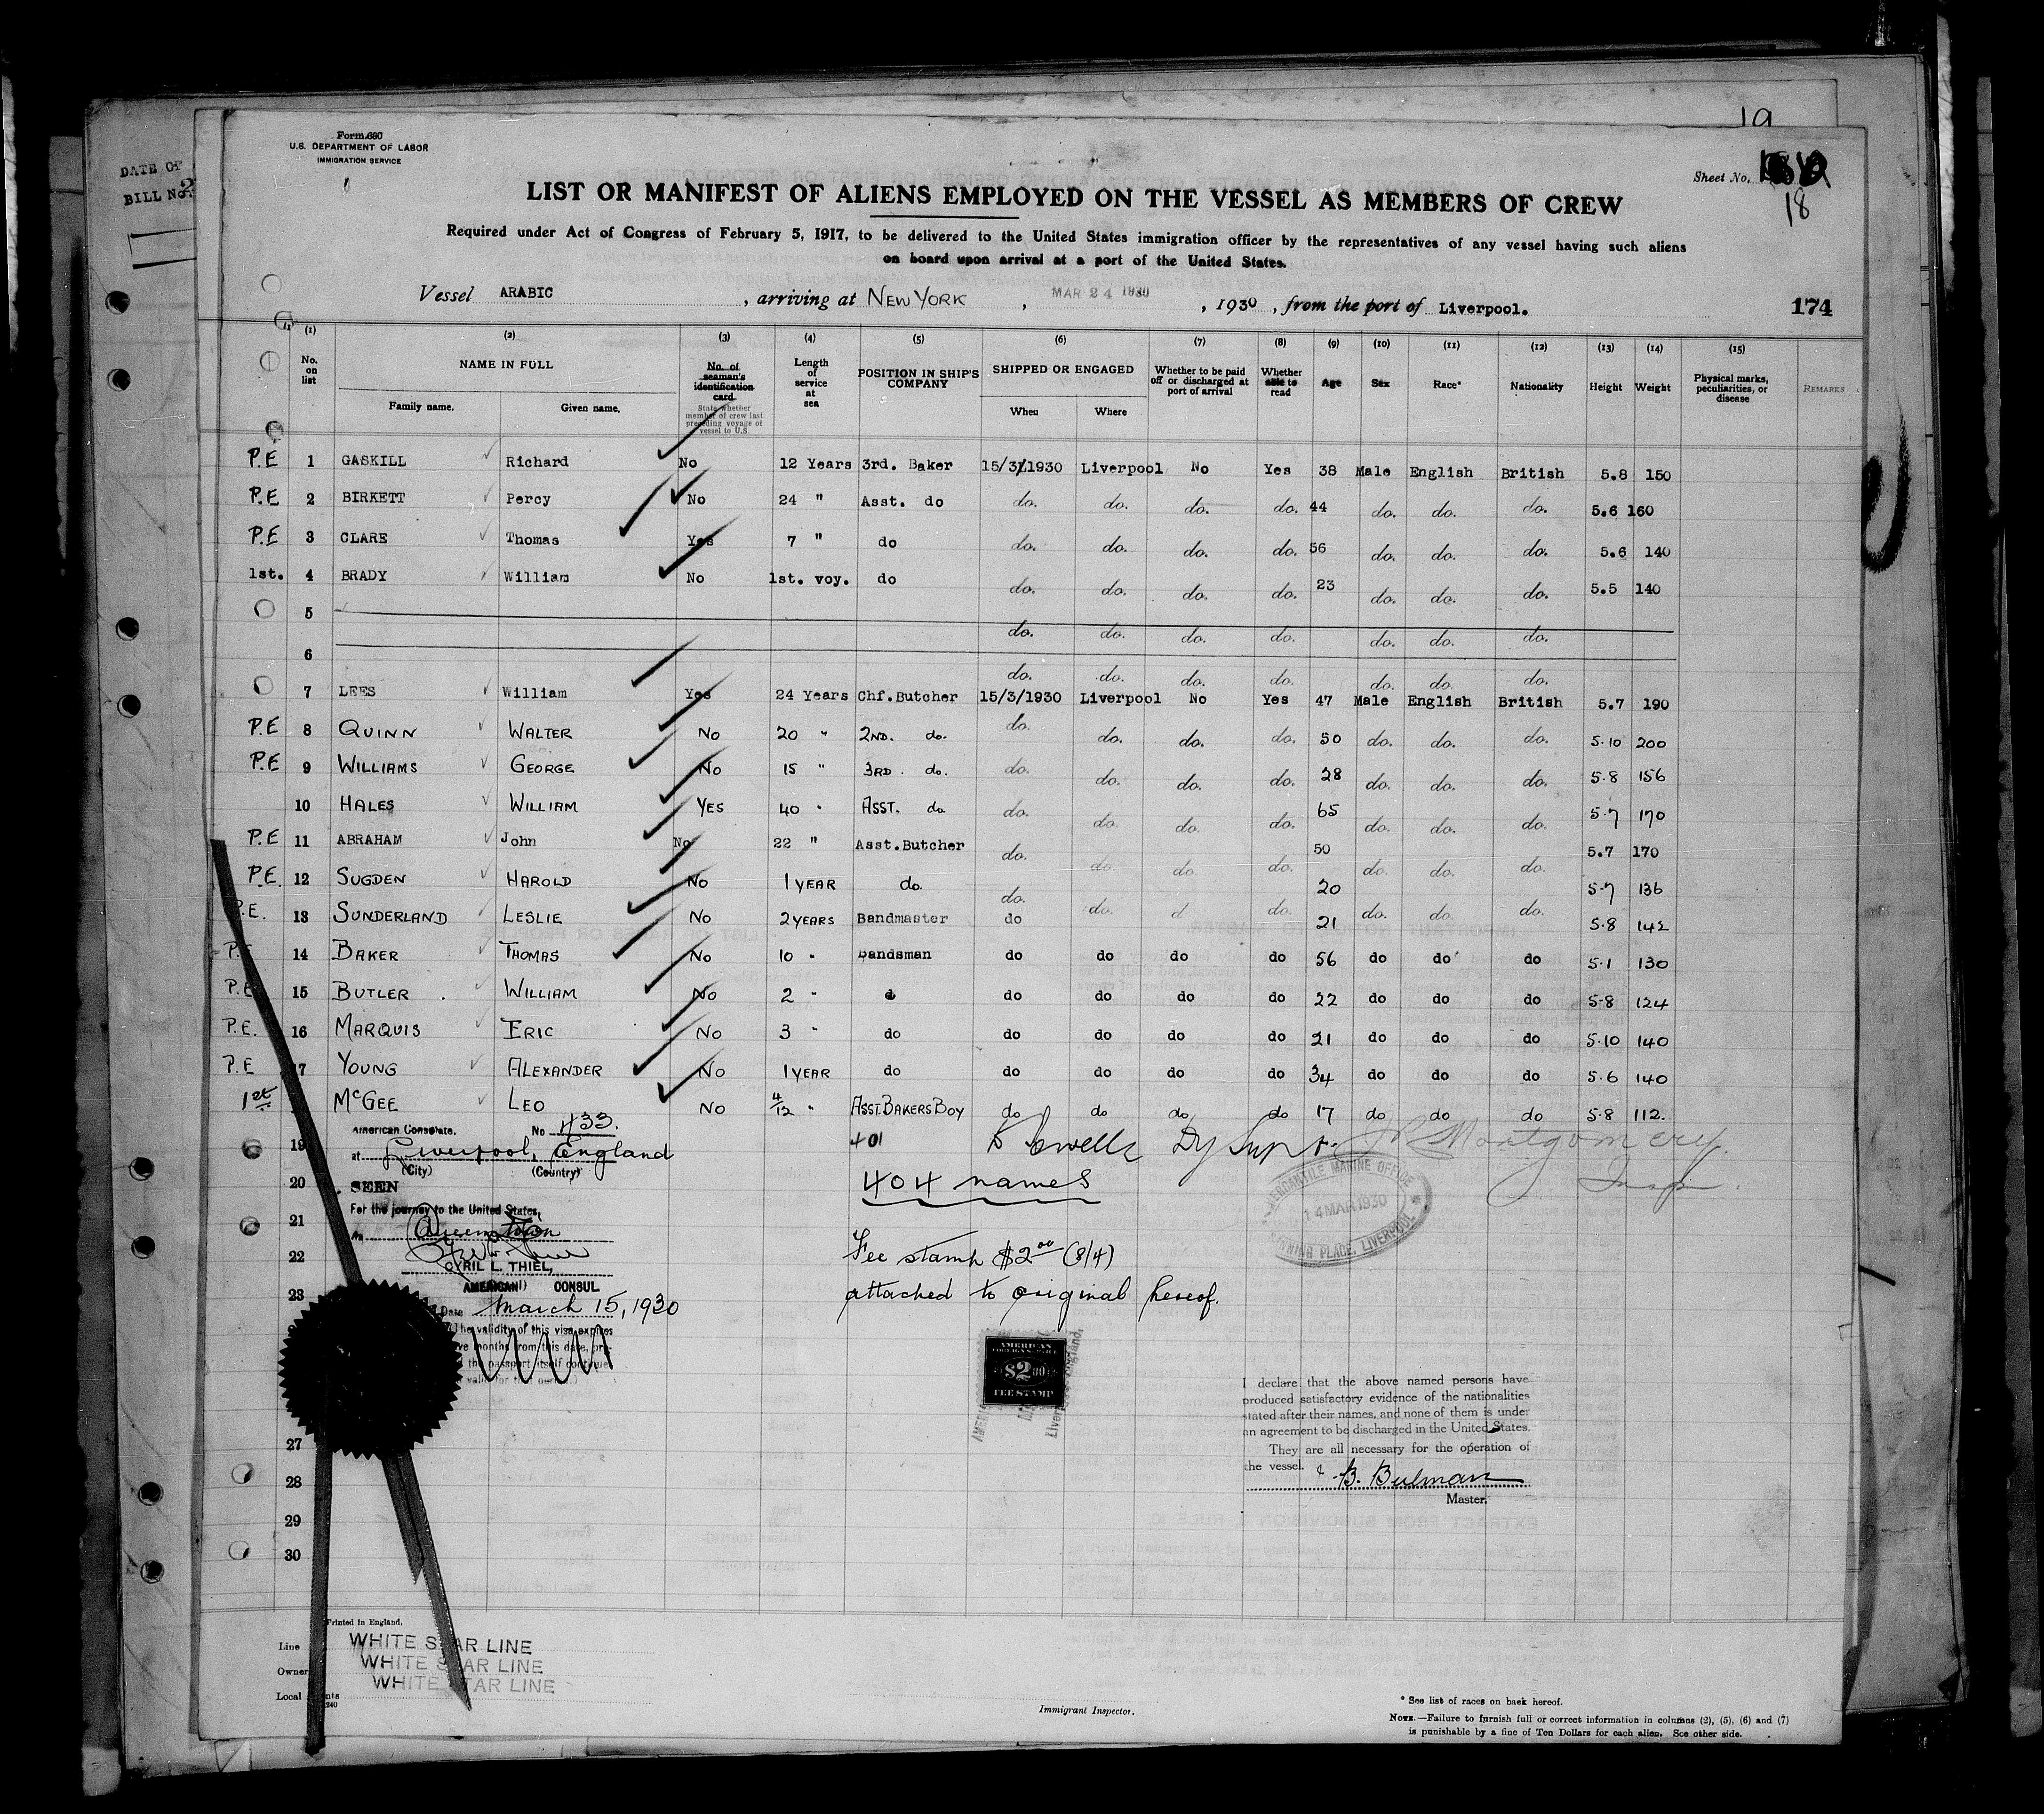 19
DATE OF
BILL NO. 2
Form 680
U.S. DEPARTMENT OF LABOR
IMMIGRATION SERVICE
Sheet No.
18
LIST OR MANIFEST OF ALIENS EMPLOYED ON THE VESSEL AS MEMBERS OF CREW
Required under Act of Congress of February 5, 1917, to be delivered to the United States immigration officer by the representatives of any vessel having such aliens
on board upon arrival at a port of the United States.
Vessel ARABIC, arriving at NEW YORK, MAR 24 1930, 1930, from the port of Liverpool. 174
(1) (2) (3) (4) (5) (6) (7) (8) (9) (10) (11) (12) (13) (14) (15)
No. on list NAME IN FULL Family name. Given name. No. of seaman's identification card. State whether member of crew last preceding voyage of vessel to U.S. Length of service at sea POSITION IN SHIP'S COMPANY SHIPPED OR ENGAGED When Where Whether to be paid off or discharged at port of arrival Whether able to read Age Sex Race* Nationality Height Weight Physical marks, peculiarities, or disease REMARKS
P.E 1 GASKILL Richard No 12 Years 3rd. Baker 15/3/1930 Liverpool No Yes 38 Male English British 5.8 150
P.E 2 BIRKETT Percy No 24 " Asst. do do. do. do. do. 44 do. do. do. 5.6 160
P.E 3 CLARE Thomas Yes 7 " do do. do. do. do. 56 do. do. do. 5.6 140
1st. 4 BRADY William No 1st. voy. do do. do. do. do. 23 do. do. do. 5.5 140
5 do. do. do. do. do. do. do.
6 do. do. do. do. do. do. do.
7 LEES William Yes 24 Years Chf. Butcher 15/3/1930 Liverpool No Yes 47 Male English British 5.7 190
P.E 8 QUINN WALTER No 20 " 2ND. do. do. do. do. do. 50 do. do. do. 5.10 200
P.E 9 WILLIAMS GEORGE No 15 " 3RD. do. do. do. do. do. 28 do. do. do. 5.8 156
10 HALES WILLIAM YES 40 " ASST. do do. do. do. do. 65 do. do. do. 5.7 170
P.E 11 ABRAHAM John No 22 " Asst. Butcher do. do. do. do. 50 do. do. do. 5.7 170
P.E. 12 SUGDEN HAROLD No 1 YEAR do. do. do. d do. 20 do. do. do. 5.7 136
P.E. 13 SUNDERLAND LESLIE No 2 YEARS Bandmaster do 21 5.8 142
P. 14 BAKER THOMAS No 10 " bandsman do do do do 56 do do do 5.1 130
P.E 15 BUTLER. WILLIAM No 2 " d do do do do 22 do do do 5.8 124
P.E. 16 MARQUIS ERIC No 3 " do do do do do 21 do do do 5.10 140
P.E 17 YOUNG ALEXANDER No 1 YEAR do do do do do 34 do do do 5.6 140
1st McGEE LEO No 4/12 " ASST. BAKERS BOY do do do do 17 do do do 5.8 112.
19 American Consulate. No 433. 401 Dy Supt. Montgomery.
at Liverpool, England Insp.
(City) (Country)
20 SEEN 404 names
MERCANTILE MARINE OFFICE 14 MAR 1930 LIVERPOOL
For the journey to the United States,
21 Queenstown
22 CYRIL L. THIEL, Fee stamp $2.00 (8/4)
AMERICAN CONSUL
23 Date March 15, 1930 attached to original hereof.
The validity of this visa expires
months from this date,
the passport itself continues
valid for that period.)
AMERICAN FOREIGN SERVICE $2.00 FEE STAMP
I declare that the above named persons have
produced satisfactory evidence of the nationalities
stated after their names, and none of them is under
an agreement to be discharged in the United States.
They are all necessary for the operation of
the vessel.
B. Bulman
Master.
27
28
29
30
Printed in England.
Line WHITE STAR LINE
Owner WHITE STAR LINE
Local WHITE STAR LINE
Immigrant Inspector.
* See list of races on back hereof.
NOTE.—Failure to furnish full or correct information in columns (2), (5), (6) and (7)
is punishable by a fine of Ten Dollars for each alien. See other side.